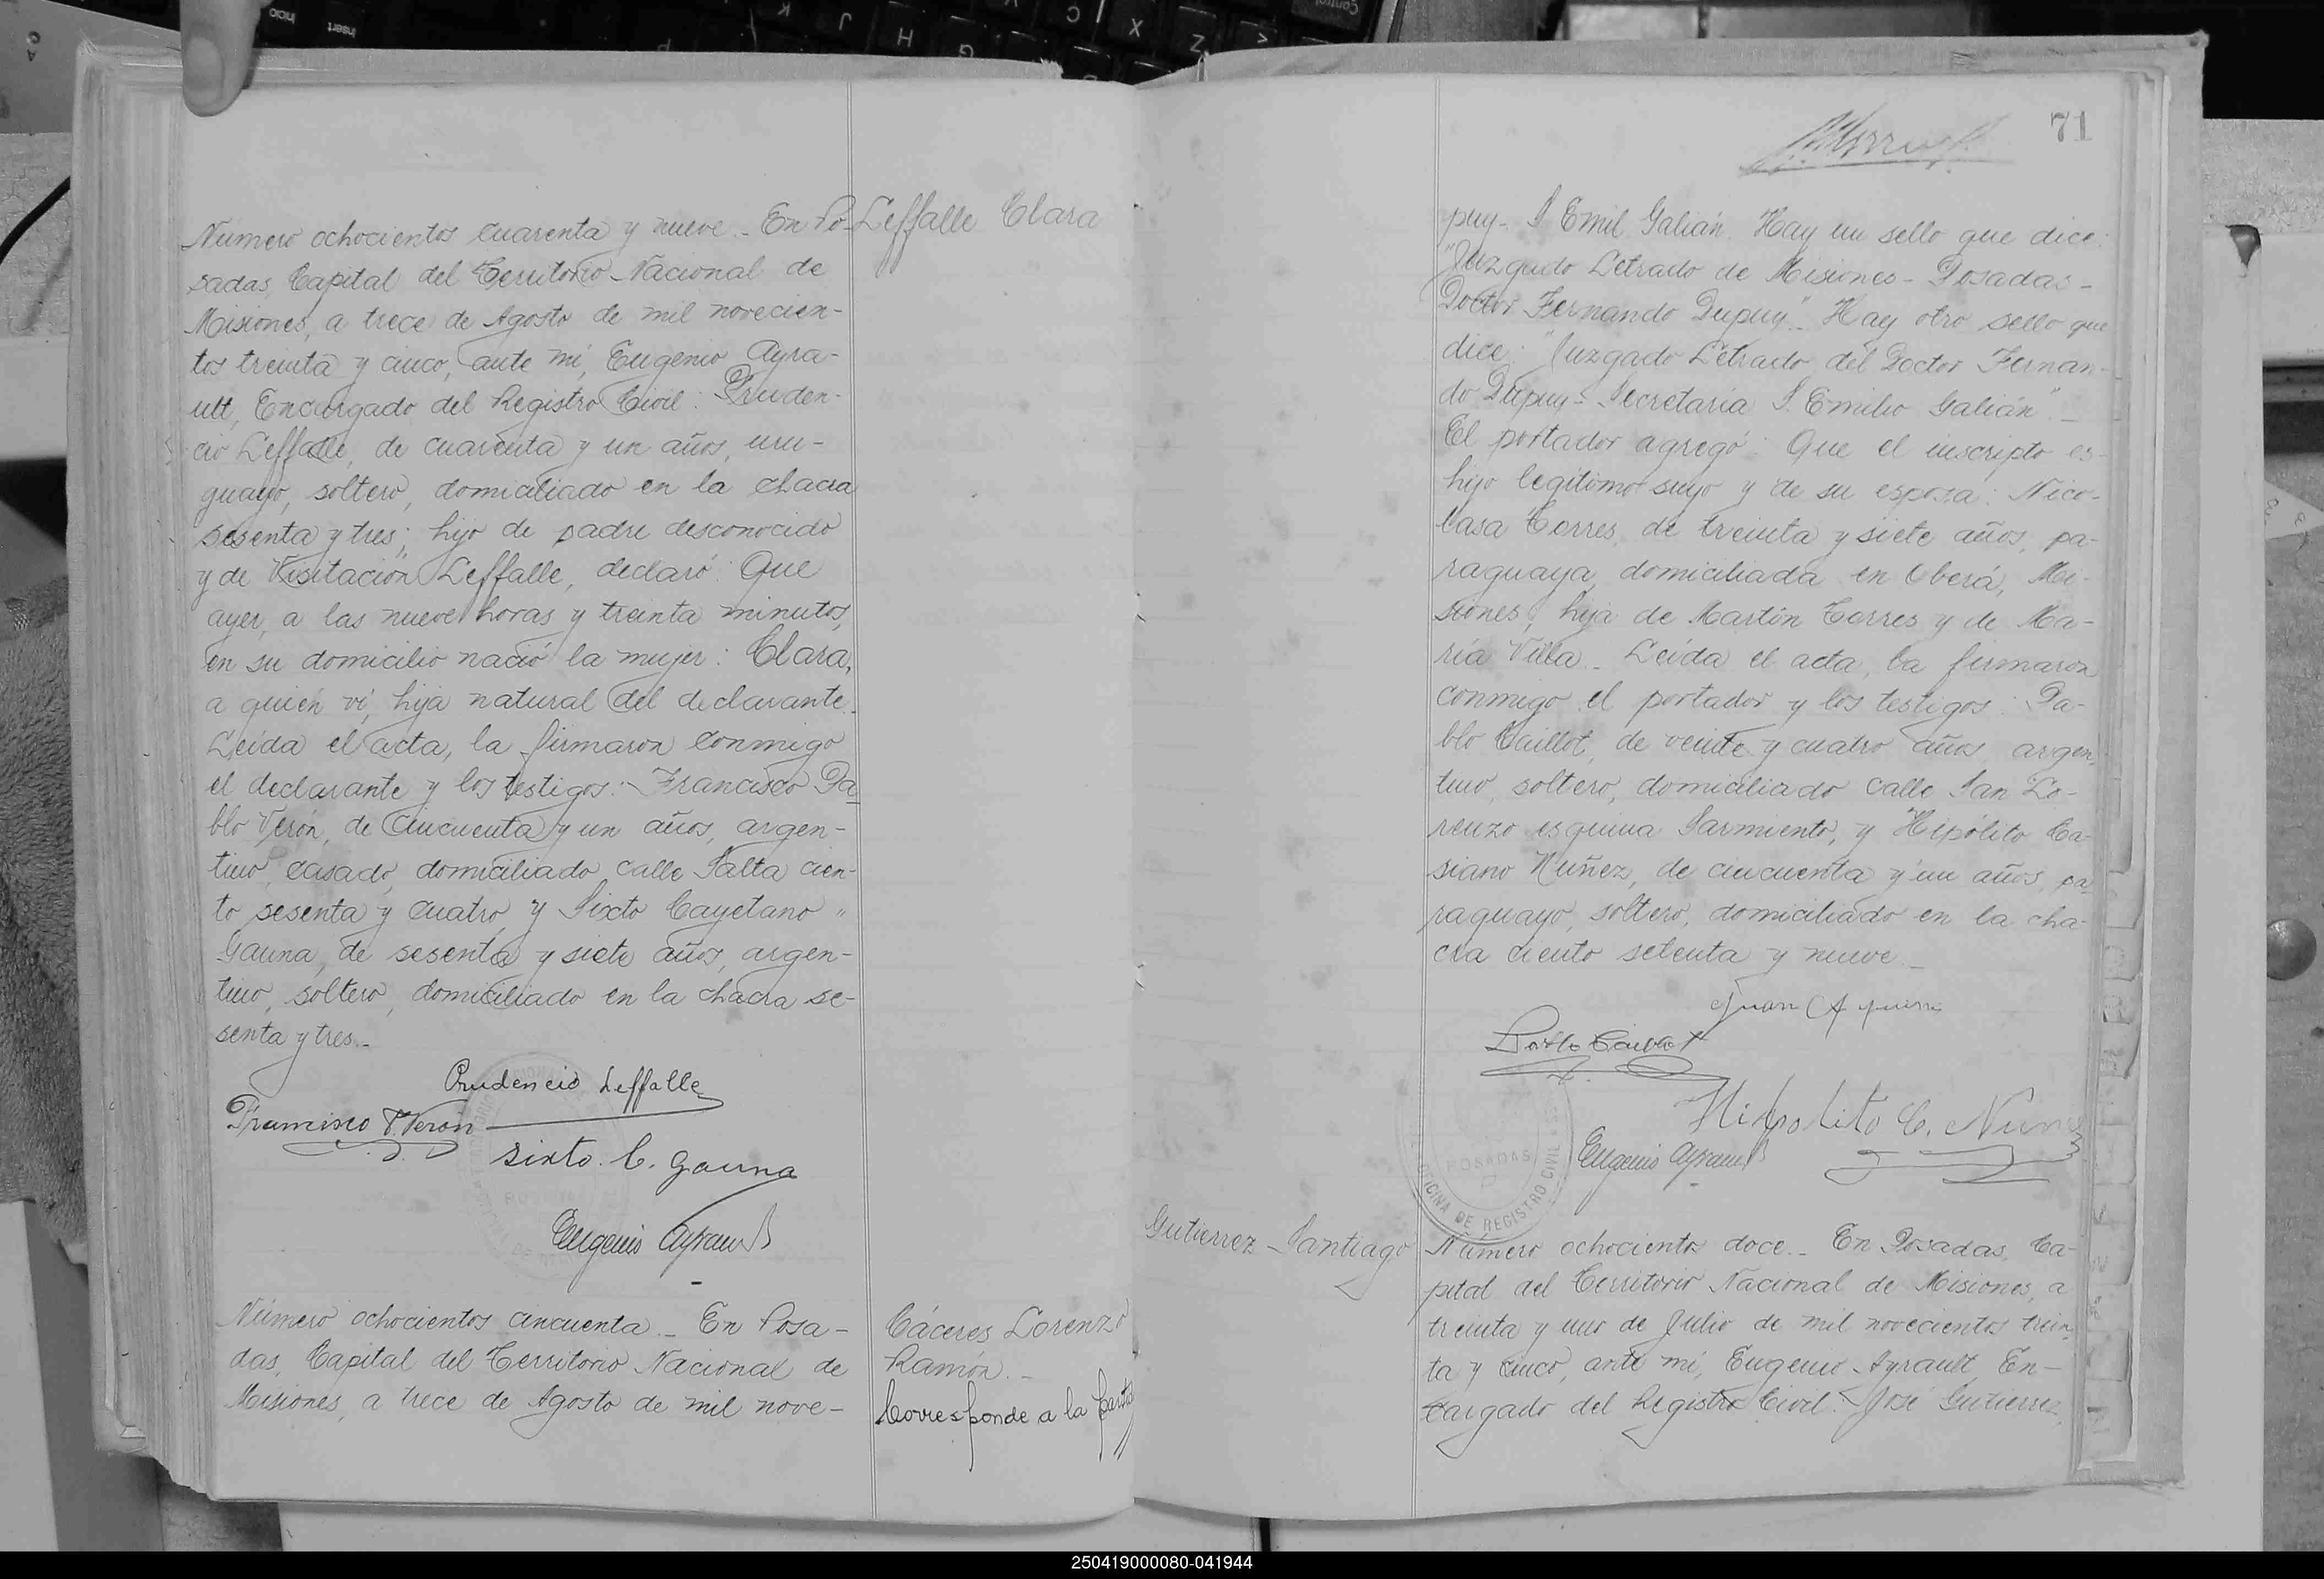 Número ochocientos cuarenta y nueve.- En Po-
sadas, Capital del Territorio Nacional de
Misiones, a trece de Agosto de mil novecien-
tos treinta y cinco, ante mí, Eugenio Ayra-
ult, Encargado del Registro Civil: Pruden-
cio Leffalle, de cuarenta y un años, uru-
guayo, soltero, domiciliado en la chacra
sesenta y tres; hijo de padre desconocido
y de Visitación Leffalle, declaró: Que
ayer, a las nueve horas y treinta minutos,
en su domicilio nació la mujer: Clara,
a quién ví, hija natural del declarante.
Leída el acta, la firmaron conmigo
el declarante y los testigos: Francisco Pa-
blo Verón, de cincuenta y un años, argen-
tino, casado, domiciliado calle Salta cien-
to sesenta y cuatro, y Sixto Cayetano "
Gauna, de sesenta y siete años, argen-
tino, soltero, domiciliado en la chacra se-
senta y tres.-
Prudencio Leffalle
Francisco P. Veron
Sixto. C. Gauna
Eugenio Ayrault
Número ochocientos cincuenta.- En Posa-
das, Capital del Territorio Nacional de
Misiones, a trece de Agosto de mil nove-
Leffalle Clara
Cáceres Lorenzo
Ramón.-
Corresponde a la
71
puy- S Emil Galián. Hay un sello que dice:
"Juzgado Letrado de Misiones- Posadas-
Doctor Fernando Dupuy".- Hay otro sello que
dice: "Juzgado Letrado del Doctor Fernan-
do Dupuy- Secretaría S. Emilio Galián".-
El portador agregó: Que el inscripto es
hijo legítimo suyo y de su esposa: Nico-
lasa Torres, de treinta y siete años, pa-
raguaya, domiciliada en Oberá, Mi-
siones, hija de Martín Torres y de Ma-
ría Villa.- Leída el acta, la firmaron
conmigo el portador y los testigos: Pa-
blo Caillot, de veinte y cuatro años, argen-
tino, soltero, domiciliado calle San Lo-
renzo esquina Sarmiento, y Hipólito Ca-
siano Nuñez, de cincuenta y un años, pa-
raguayo, soltero, domiciliado en la cha-
cra ciento setenta y nueve.-
Juan A
Pablo Caillot
Hipolito C. Nuñez
Eugenio Ayrault
POSADAS
OFICINA DE REGISTRO CIVIL
Gutierrez - Santiago
Número ochocientos doce.- En Posadas, Ca-
pital del Territorio Nacional de Misiones, a
treinta y uno de Julio de mil novecientos trein-
ta y cinco, ante mí, Eugenio Ayrault, En-
cargado del Registro Civil: José Gutierrez,
250419000080-041944